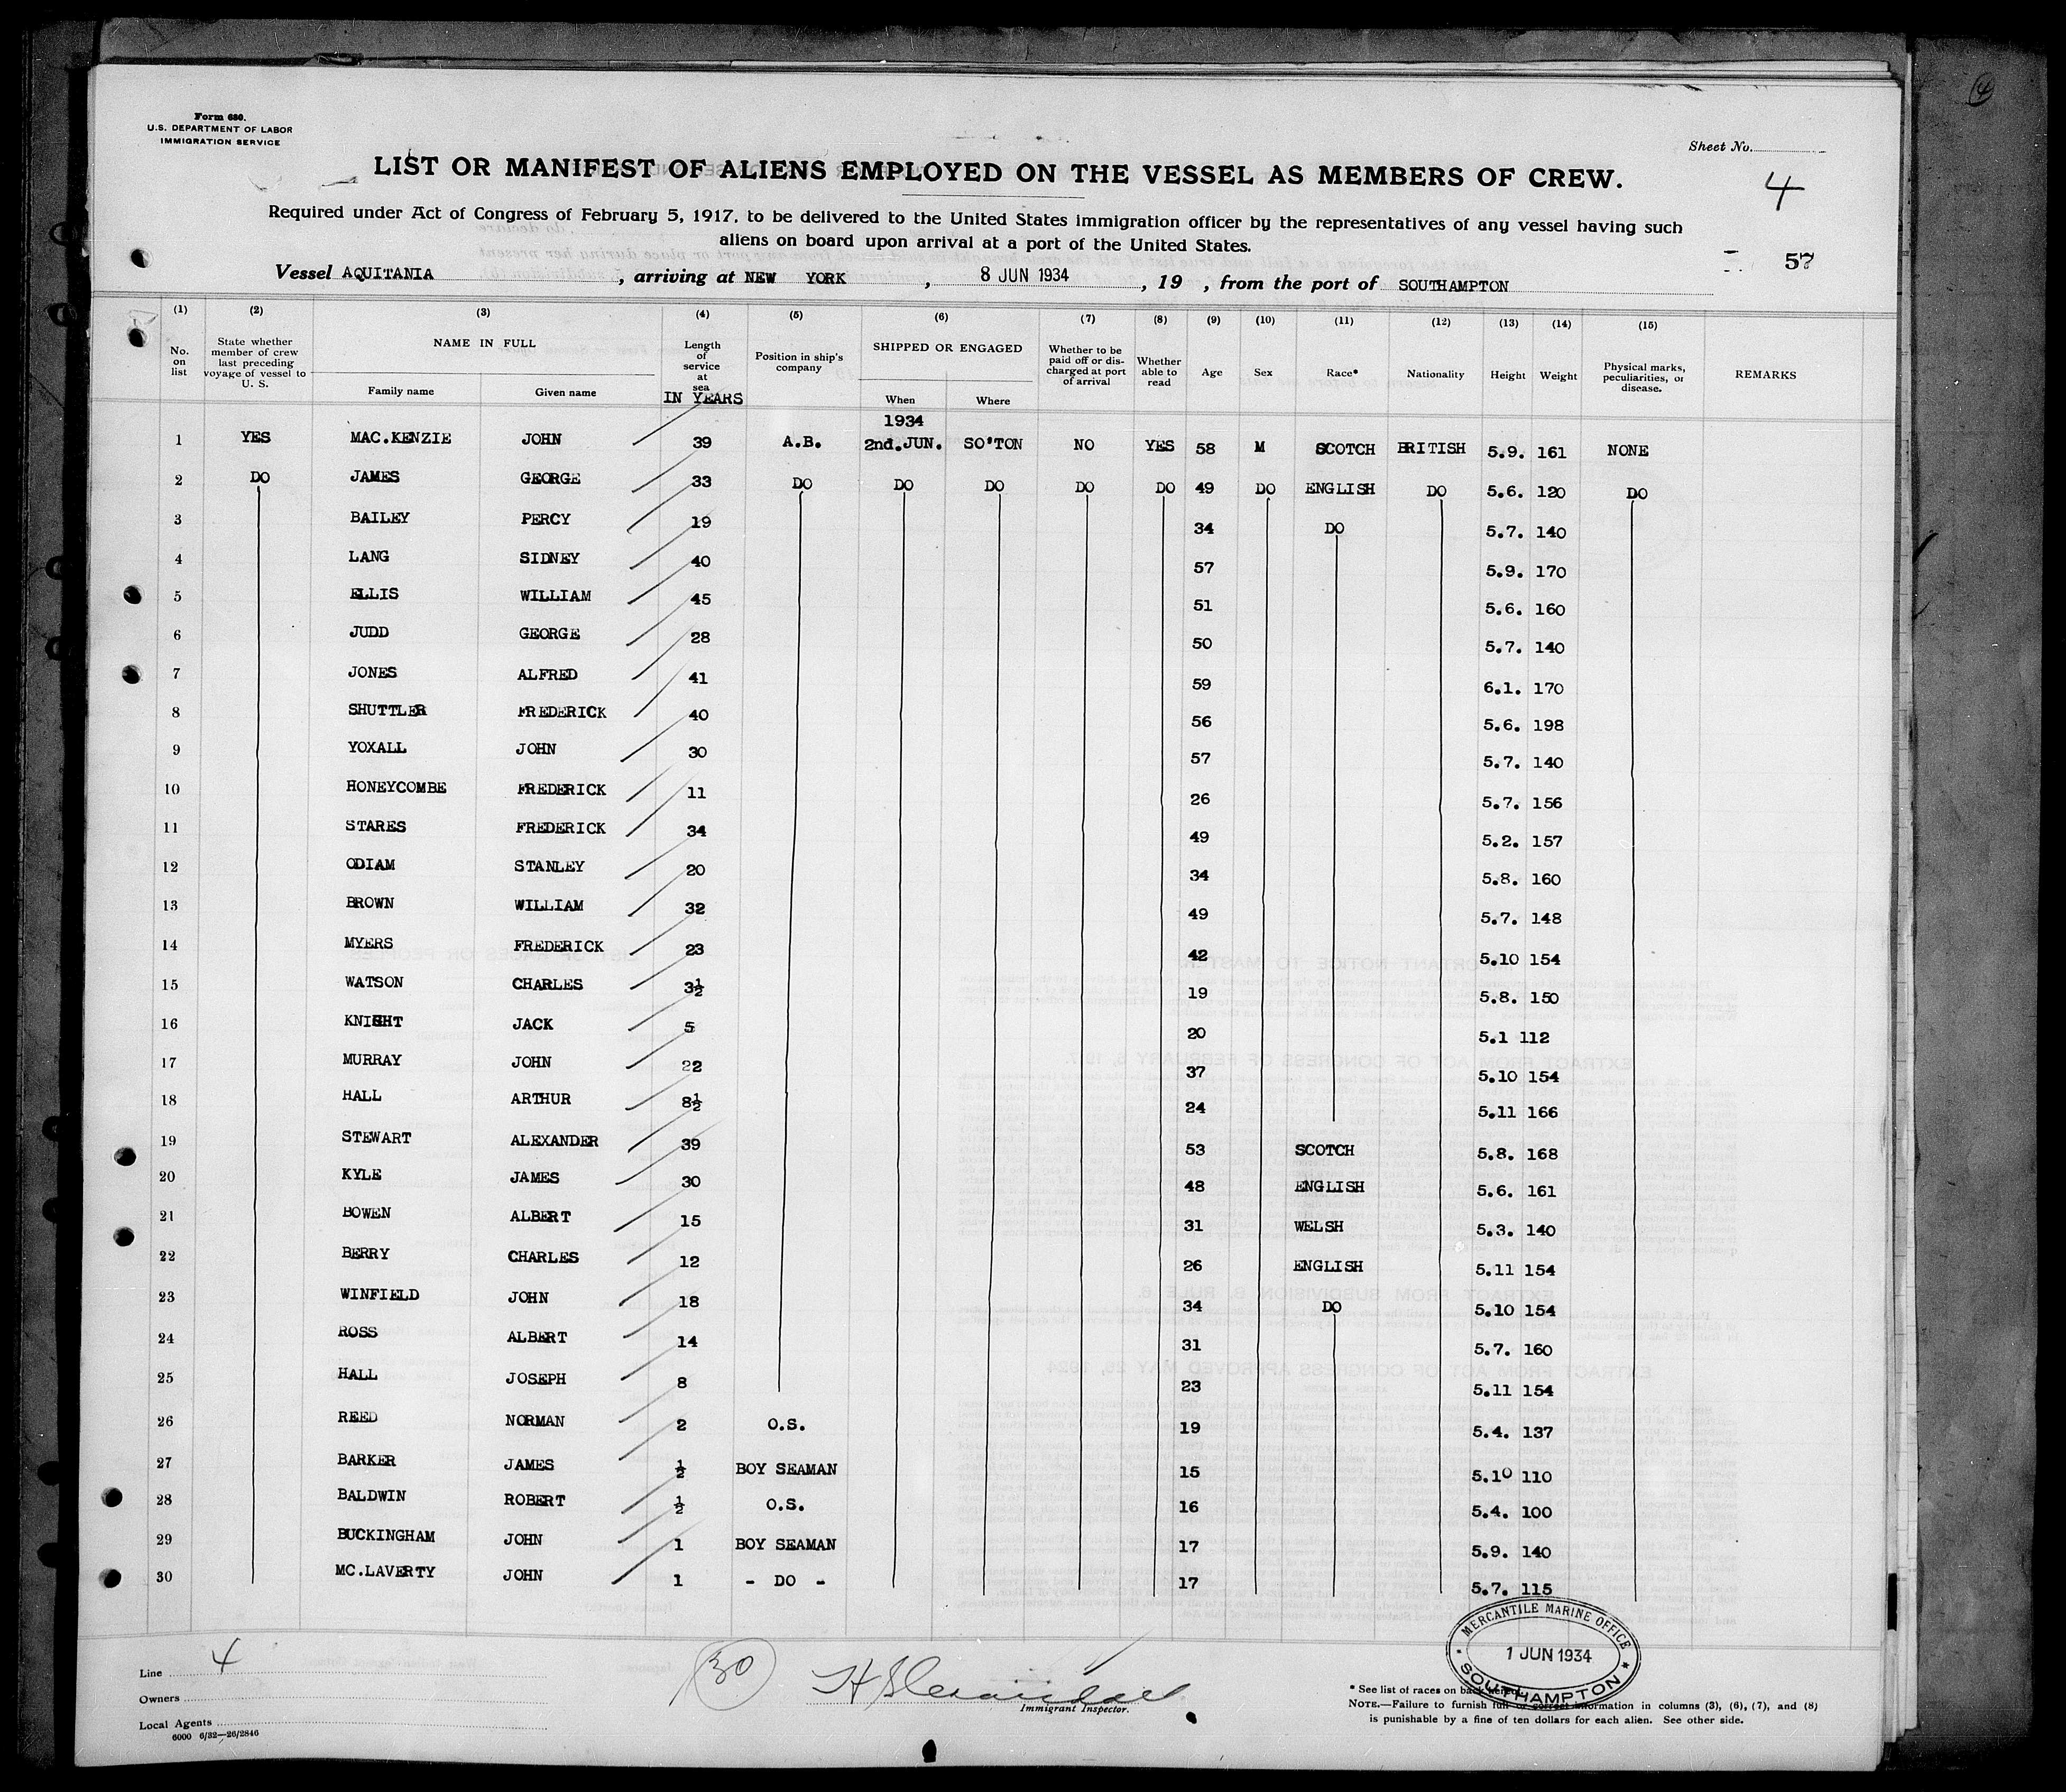 4
Form 680.
U.S. DEPARTMENT OF LABOR
IMMIGRATION SERVICE
Sheet No.
LIST OR MANIFEST OF ALIENS EMPLOYED ON THE VESSEL AS MEMBERS OF CREW.
4
Required under Act of Congress of February 5, 1917, to be delivered to the United States immigration officer by the representatives of any vessel having such
aliens on board upon arrival at a port of the United States.
57
Vessel AQUITANIA, arriving at NEW YORK, 8 JUN 1934, 19 , from the port of SOUTHAMPTON
(1) (2) (3) (4) (5) (6) (7) (8) (9) (10) (11) (12) (13) (14) (15)
No. on list State whether member of crew last preceding voyage of vessel to U. S. NAME IN FULL Family name Given name Length of service at sea IN YEARS Position in ship's company SHIPPED OR ENGAGED When Where Whether to be paid off or discharged at port of arrival Whether able to read Age Sex Race* Nationality Height Weight Physical marks, peculiarities, or disease. REMARKS
1934
1 YES MAC.KENZIE JOHN 39 A.B. 2nd.JUN. SO'TON NO YES 58 M SCOTCH BRITISH 5.9. 161 NONE
2 DO JAMES GEORGE 33 DO DO DO DO DO 49 DO ENGLISH DO 5.6. 120 DO
3 BAILEY PERCY 19 34 DO 5.7. 140
4 LANG SIDNEY 40 57 5.9. 170
5 ELLIS WILLIAM 45 51 5.6. 160
6 JUDD GEORGE 28 50 5.7. 140
7 JONES ALFRED 41 59 6.1. 170
8 SHUTTLER FREDERICK 40 56 5.6. 198
9 YOXALL JOHN 30 57 5.7. 140
10 HONEYCOMBE FREDERICK 11 26 5.7. 156
11 STARES FREDERICK 34 49 5.2. 157
12 ODIAM STANLEY 20 34 5.8. 160
13 BROWN WILLIAM 32 49 5.7. 148
14 MYERS FREDERICK 23 42 5.10 154
15 WATSON CHARLES 3½ 19 5.8. 150
16 KNIGHT JACK 5 20 5.1 112
17 MURRAY JOHN 22 37 5.10 154
18 HALL ARTHUR 8½ 24 5.11 166
19 STEWART ALEXANDER 39 53 SCOTCH 5.8. 168
20 KYLE JAMES 30 48 ENGLISH 5.6. 161
21 BOWEN ALBERT 15 31 WELSH 5.3. 140
22 BERRY CHARLES 12 26 ENGLISH 5.11 154
23 WINFIELD JOHN 18 34 DO 5.10 154
24 ROSS ALBERT 14 31 5.7. 160
25 HALL JOSEPH 8 23 5.11 154
26 REED NORMAN 2 O.S. 19 5.4. 137
27 BARKER JAMES ½ BOY SEAMAN 15 5.10 110
28 BALDWIN ROBERT ½ O.S. 16 5.4. 100
29 BUCKINGHAM JOHN 1 BOY SEAMAN 17 5.9. 140
30 MC.LAVERTY JOHN 1 - DO - 17 5.7. 115
MERCANTILE MARINE OFFICE
1 JUN 1934
SOUTHAMPTON
Line 4
30
Owners
Immigrant Inspector.
Local Agents
6000 6/32—26/2846
* See list of races on back hereof.
NOTE.—Failure to furnish full or correct information in columns (3), (6), (7), and (8)
is punishable by a fine of ten dollars for each alien. See other side.